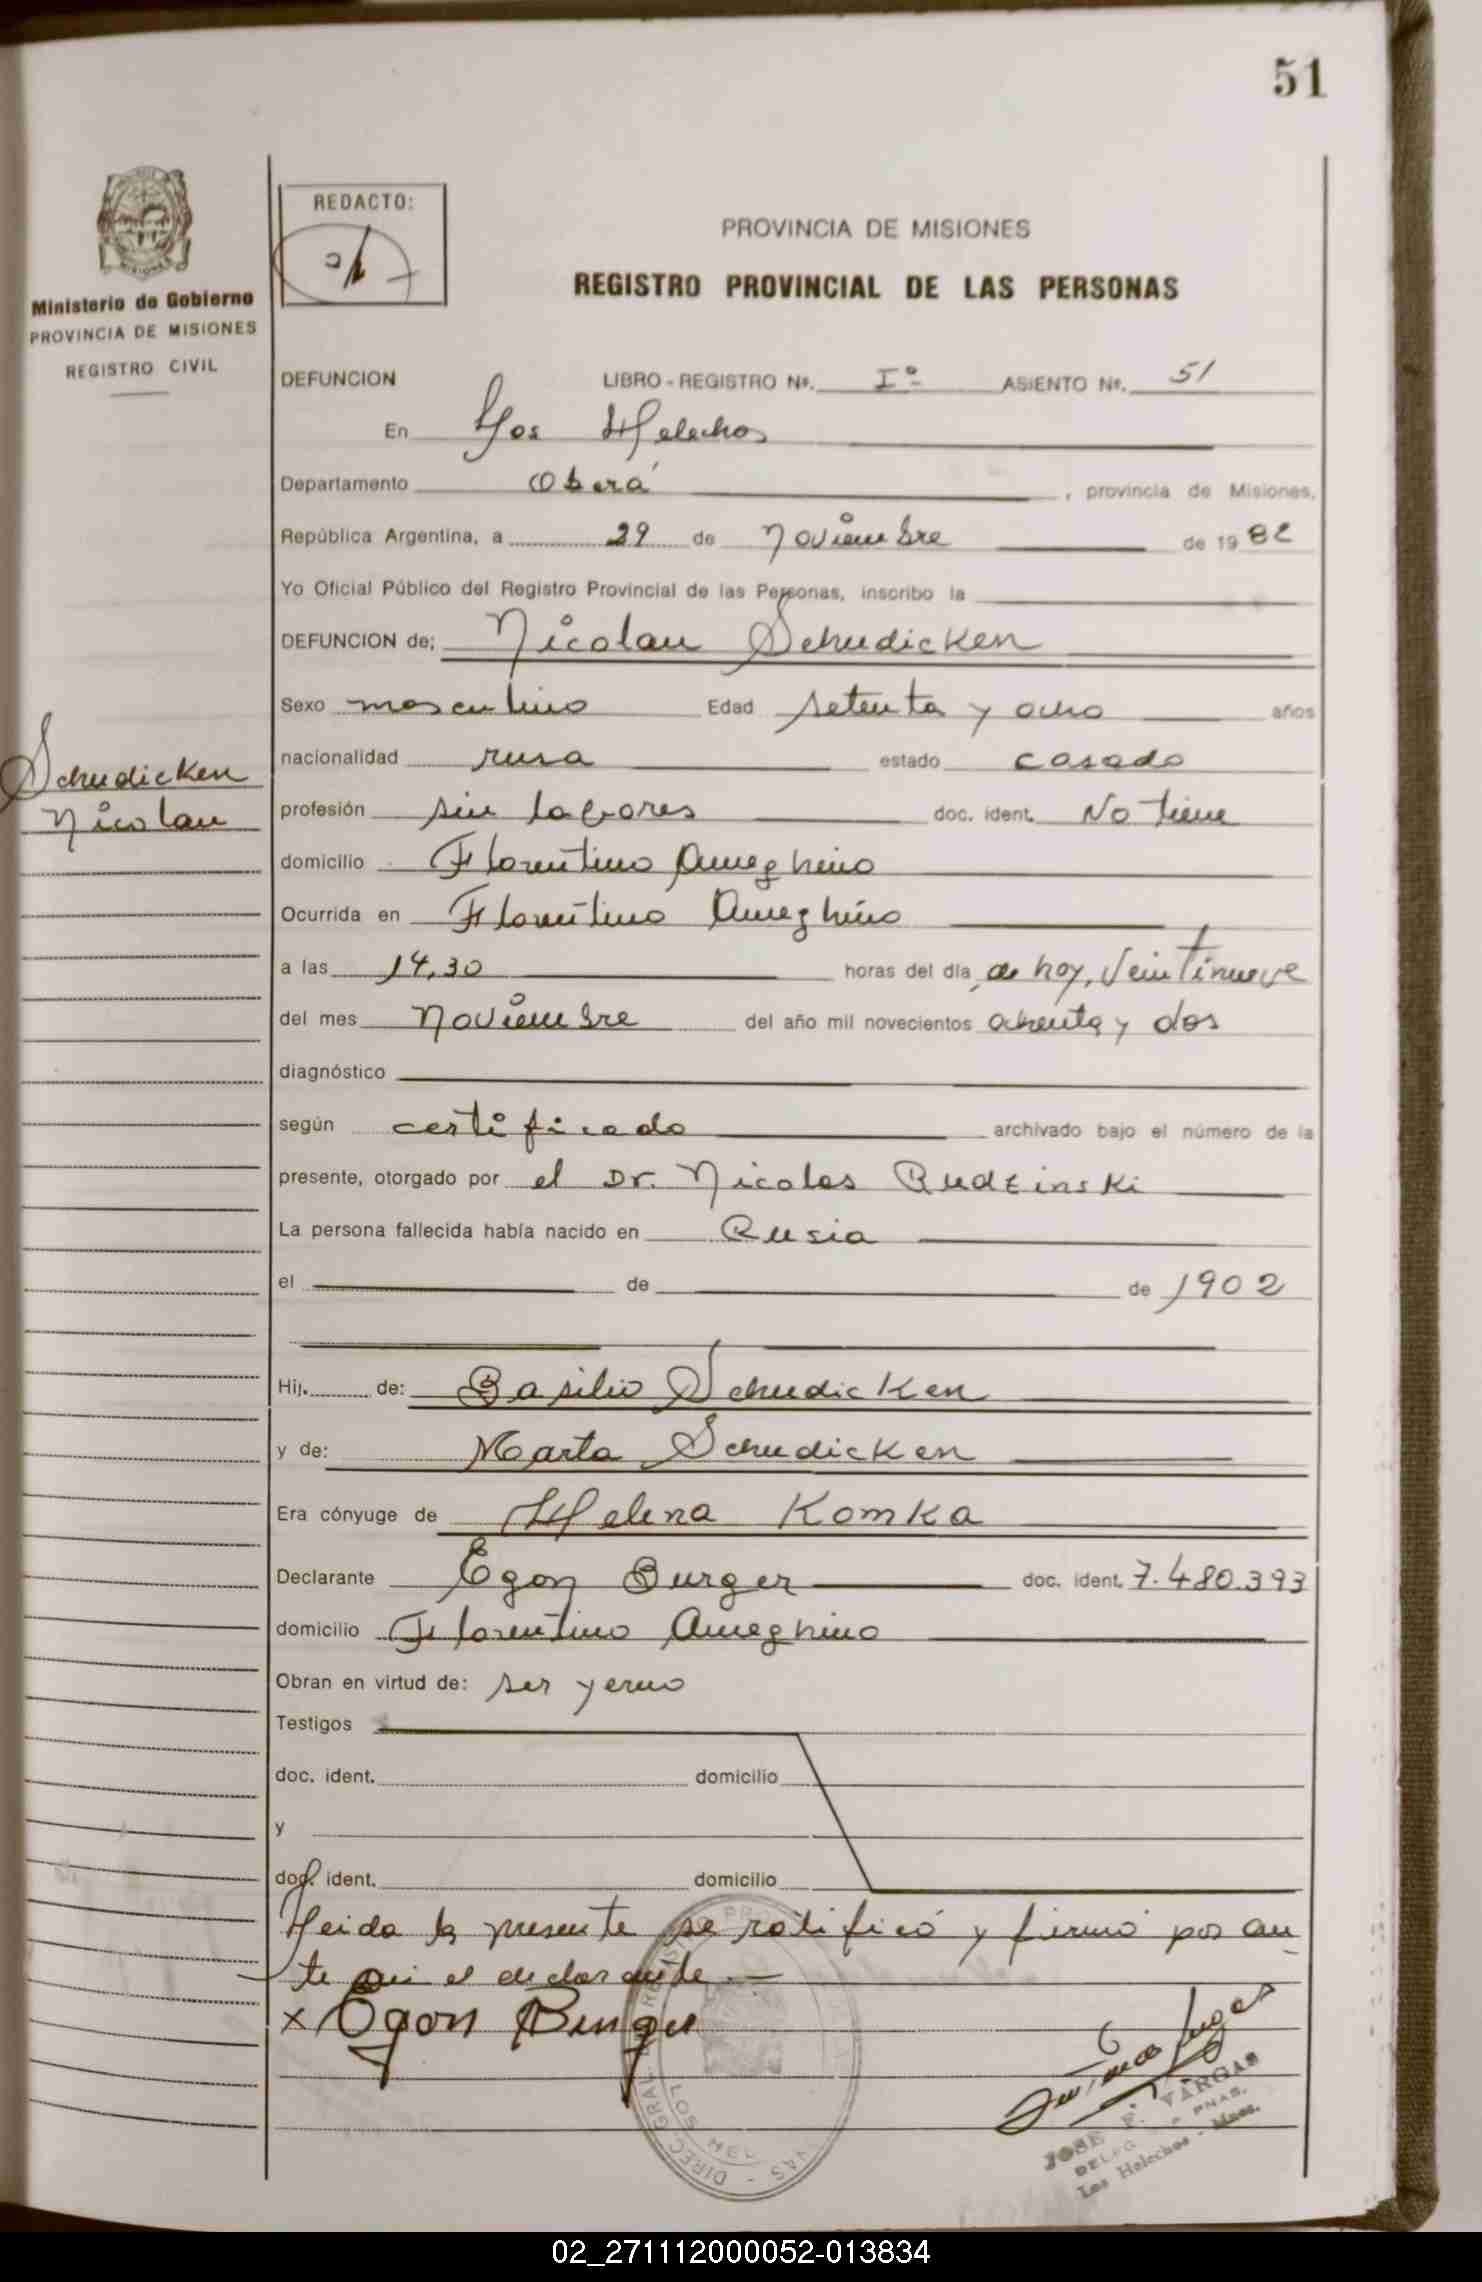 51
MISIONES
Ministerio de Gobierno
PROVINCIA DE MISIONES
REGISTRO CIVIL
REDACTO:
PROVINCIA DE MISIONES
REGISTRO PROVINCIAL DE LAS PERSONAS
DEFUNCION LIBRO - REGISTRO Nº. Iº ASIENTO Nº. 51
En Los Helechos
Departamento Oberá, provincia de Misiones,
República Argentina, a 29 de Noviembre de 1982
Yo Oficial Público del Registro Provincial de las Personas, inscribo la
DEFUNCION de; Nicolau Schudicken
Sexo masculino Edad setenta y ocho años
Schudicken
Nicolau
nacionalidad rusa estado casado
profesión sin labores doc. ident. No tiene
domicilio Florentino Ameghino
Ocurrida en Florentino Ameghino
a las 14,30 horas del día de hoy, Veintinueve
del mes Noviembre del año mil novecientos ochenta y dos
diagnóstico
según certificado archivado bajo el número de la
presente, otorgado por el Dr. Nicolas Rudzinski
La persona fallecida había nacido en Rusia
el de de 1902
Hij. de: Basilio Schudicken
y de: Marta Schudicken
Era cónyuge de Helena Komka
Declarante Egon Burger doc. ident. 7.480.393
domicilio Florentino Ameghino
Obran en virtud de: ser yerno
Testigos
doc. ident. domicilio
y
doc. ident. domicilio
Leida la presente se ratificó y firmó por an-
te mi el declarante.-
x Egon Burger
JOSE F. VARGAS
Los Helechos - Mnes.
02_271112000052-013834